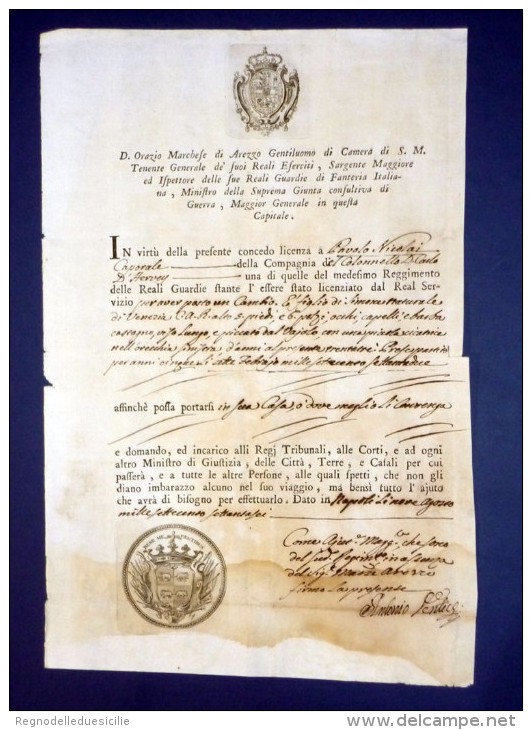 D. Orazio Marchese di Arezzo Gentiluomo di Camera di S. M.
Tenente Generale de' suoi Reali Eserciti, Sargente Maggiore
ed Ispettore delle sue Reali Guardie di Fanteria Italia-
na, Ministro della Suprema Giunta consultiva di
Guerra, Maggior Generale in questa
Capitale.
IN virtù della presente concedo licenza a Pavolo Nicolai
Caporale della Compagnia del Colonnello D. Carlo
D'Hervey una di quelle del medesimo Reggimento
delle Reali Guardie stante l'essere stato licenziato dal Real Ser-
vizio per aver posto un Cambio. È figlio di Simone naturale
di Venezia C.A.R. alto 5 piedi, e 6 polzi, occhi, capelli, e barba
castagno, viso lungo, e piccato dal Vajolo con una piccola cicatrice
nell'orecchia sinistra d'anni al presente trentatre
per anni cinque li sette Febrajo mille settecento settantadue
affinchè possa portarsi in sua Casa, o dove meglio li convenga
e domando, ed incarico alli Regj Tribunali, alle Corti, e ad ogni
altro Ministro di Giustizia, delle Città, Terre, e Casali per cui
passerà, e a tutte le altre Persone, alle quali spetti, che non gli
diano imbarazzo alcuno nel suo viaggio, ma bensì tutto l'ajuto
che avrà di bisogno per effettuarlo. Dato in Napoli li nove Agosto
mille settecento settantasei
Come Ajut. Magg. che sono
del sud. Regim. in assenza
del Sig. March. Arezzo
firmo la presente
Antonio
Regnodelleduesicilie http://www.delcampe.net